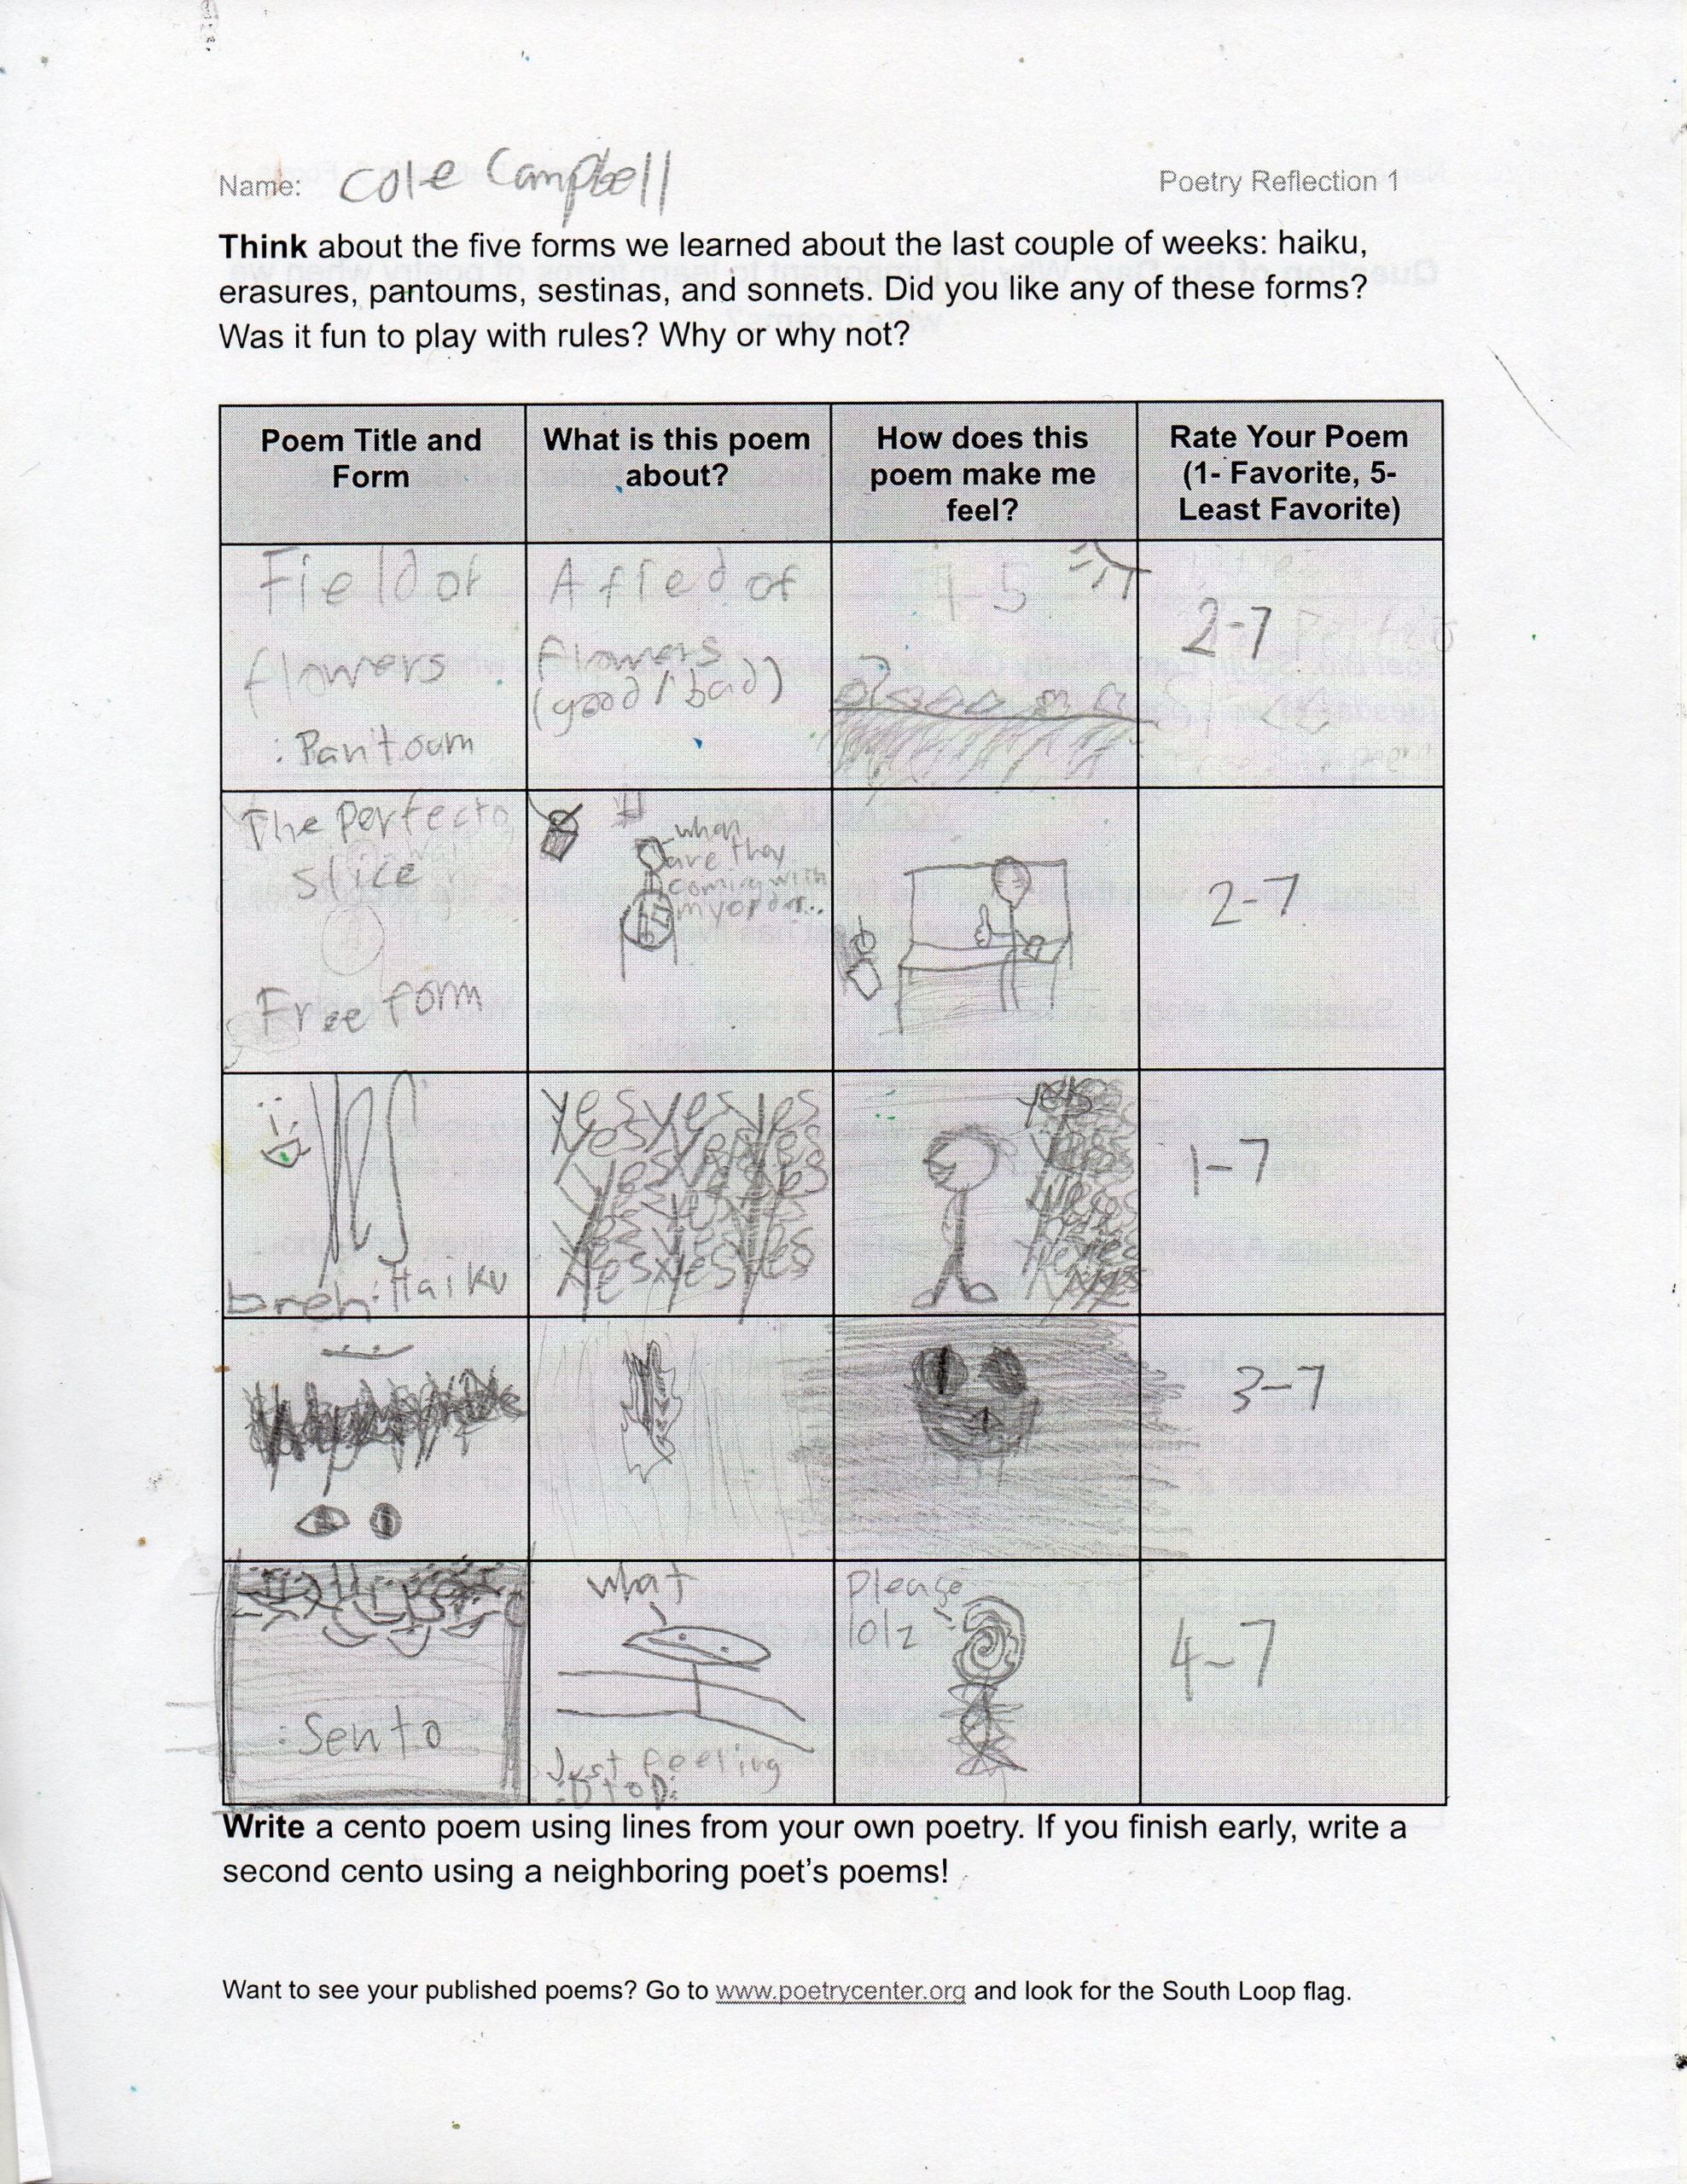 Name: Cole Campbell
Poetry Reflection 1
Think about the five forms we learned about the last couple of weeks: haiku,
erasures, pantoums, sestinas, and sonnets. Did you like any of these forms?
Was it fun to play with rules? Why or why not?
Poem Title and
Form
What is this poem
about?
How does this
poem make me
feel?
Rate Your Poem
(1- Favorite, 5-
Least Favorite)
Field of
flowers
: Pantoum
A fied of
flowers
(good / bad)
1-5
2-7
The perfecto
slice
Free form
-when
are they
coming with
my order...
2-7
breh: Haiku
yes yes yes
yes yes yes
yes yes yes
yes yes yes
yes yes yes
yes
yes
yes
1-7
3-7
: Sento
what
Just feeling
Please
lolz
4-7
Write a cento poem using lines from your own poetry. If you finish early, write a
second cento using a neighboring poet's poems!
Want to see your published poems? Go to www.poetrycenter.org and look for the South Loop flag.